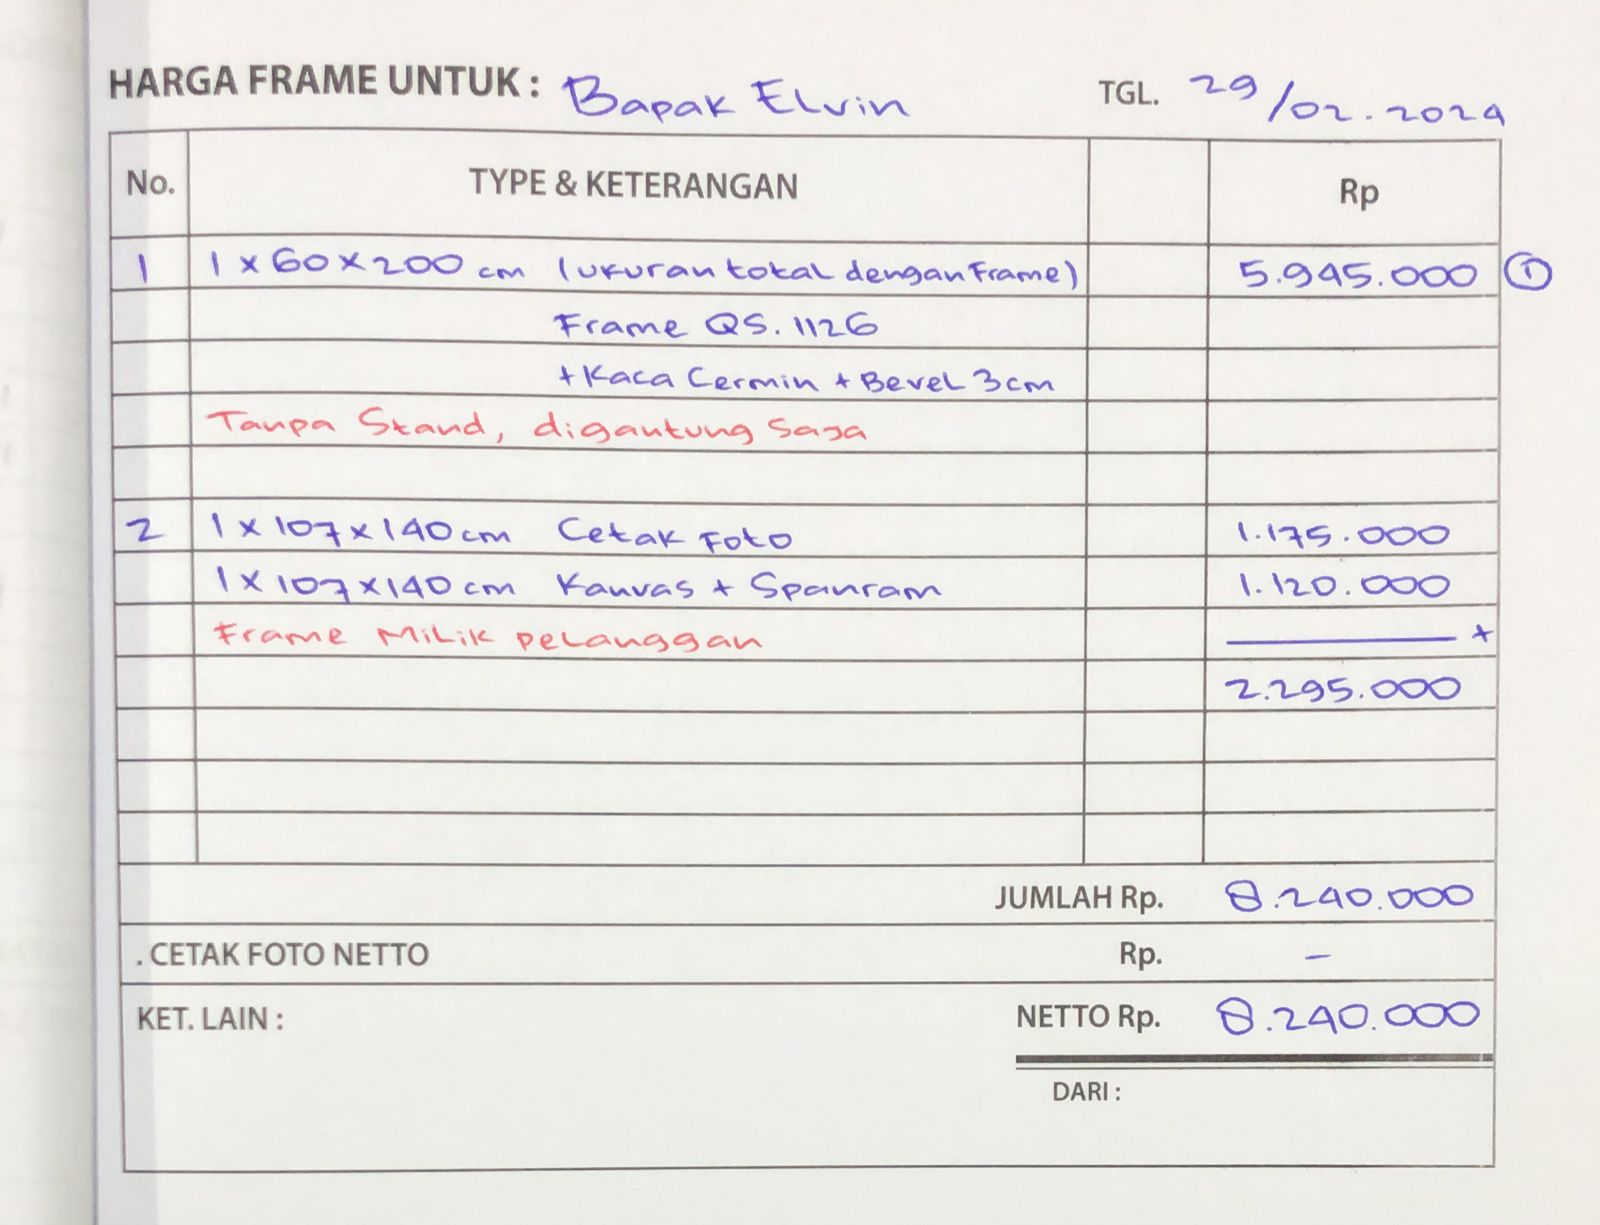 HARGA FRAME UNTUK : Bapak Elvin TGL. 29/02.2024
No. TYPE & KETERANGAN Rp
1 1 x 60 x 200 cm (ukuran total dengan Frame) 5.945.000 ①
Frame QS. 1126
+ Kaca Cermin + Bevel 3 cm
Tanpa Stand, digantung Saja
2 1 x 107 x 140 cm Cetak Foto 1.175.000
1 x 107 x 140 cm Kanvas + Spanram 1.120.000
Frame Milik pelanggan +
2.295.000
JUMLAH Rp. 8.240.000
. CETAK FOTO NETTO Rp. –
KET. LAIN : NETTO Rp. 8.240.000
DARI :